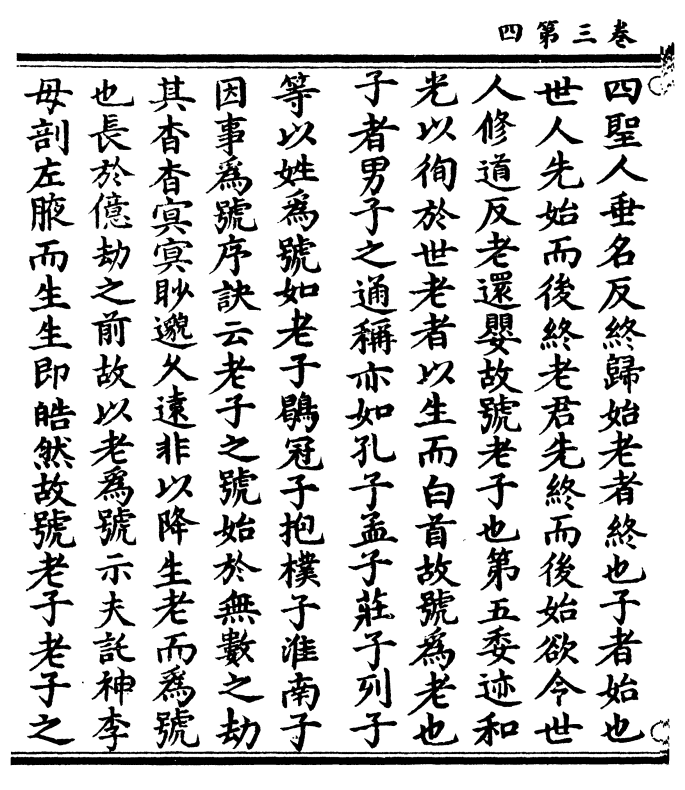 卷三第四
四聖人垂名反終歸始老者終也子者始也
世人先始而後終老君先終而後始欲令世
人修道反老還嬰故號老子也第五委迹和
光以徇於世老者以生而白首故號爲老也
子者男子之通稱亦如孔子孟子莊子列子
等以姓爲號如老子鶡冠子抱樸子淮南子
因事爲號序訣云老子之號始於無數之劫
其杳杳冥冥眇邈久遠非以降生老而爲號
也長於億劫之前故以老爲號示夫託神李
母剖左腋而生生即皓然故號老子老子之